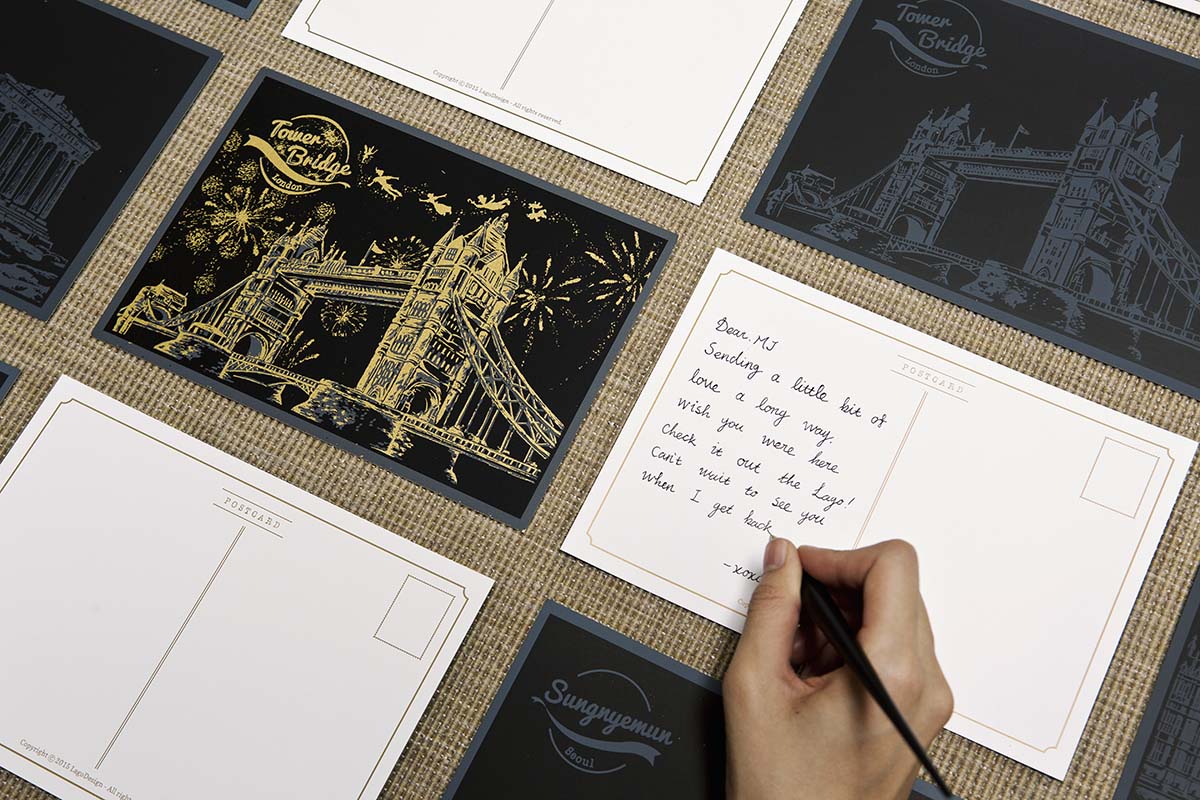 Copyright ⓒ 2015 LagoDesign - All rights reserved.
Tower
Bridge
London
Tower
Bridge
London
POSTCARD
Dear. MJ
Sending a little bit of
love a long way.
wish you were here
check it out the Lago!
Can't wait to see you
when I get back
-xoxo
POSTCARD
Copyright ⓒ 2015 LagoDesign - All
Sungnyemun
Seoul